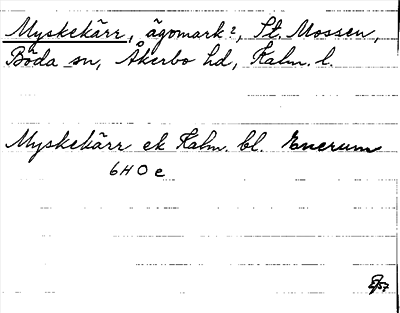 Myskekärr, ägomark?, St. Mossen,
Böda sn, Åkerbo hd, Kalm. l.
Myskekärr ek Kalm. bl. Enerum
6H0e